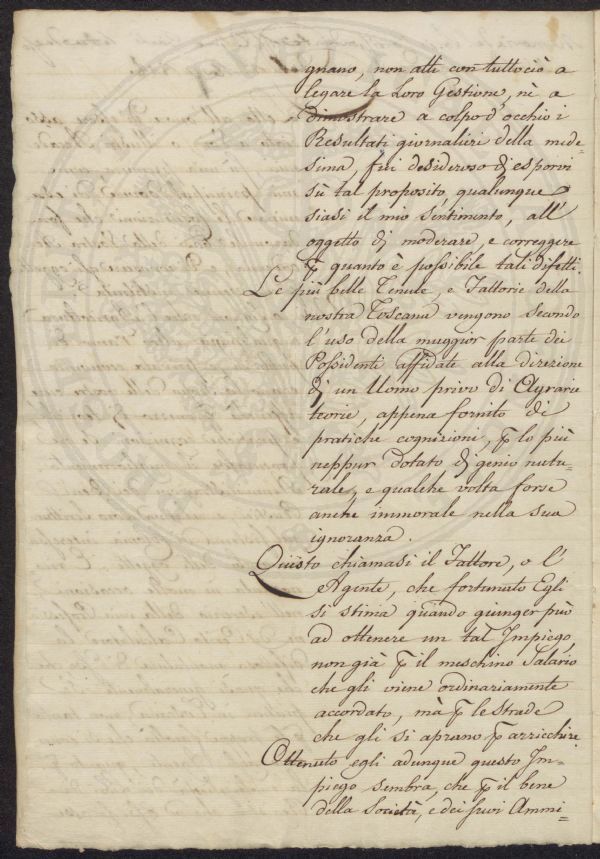 gnano, non atti con tuttociò a
legare la Loro Gestione, nè a
dimostrare a colpo d'occhio i
Resultati giornalieri della mede=
sima, fui desideroso di esporvi
sù tal proposito, qualunque
siasi il mio sentimento, all'
oggetto di moderare, e correggere
p quanto è possibile tali difetti.
Le più belle Tenute, e Fattorie della
nostra Toscana vengono secondo
l'uso della maggior parte dei
Possidenti affidate alla direzione
di un Uomo privo di Agrarie
teorie, appena fornito di
pratiche cognizioni, p lo più
neppur dotato di genio natu=
rale, e qualche volta forse
anche immorale nella sua
ignoranza.
Questo chiamasi il Fattore, o l'
Agente, che fortunato Egli
si stima quando giunger può
ad ottenere un tal Impiego,
non già p il meschino Salario
che gli viene ordinariamente
accordato, mà p le strade
che gli si aprano p arricchire.
Ottenuto egli adunque questo Im=
piego sembra, che p il bene
della Società, e dei suoi Ammi=